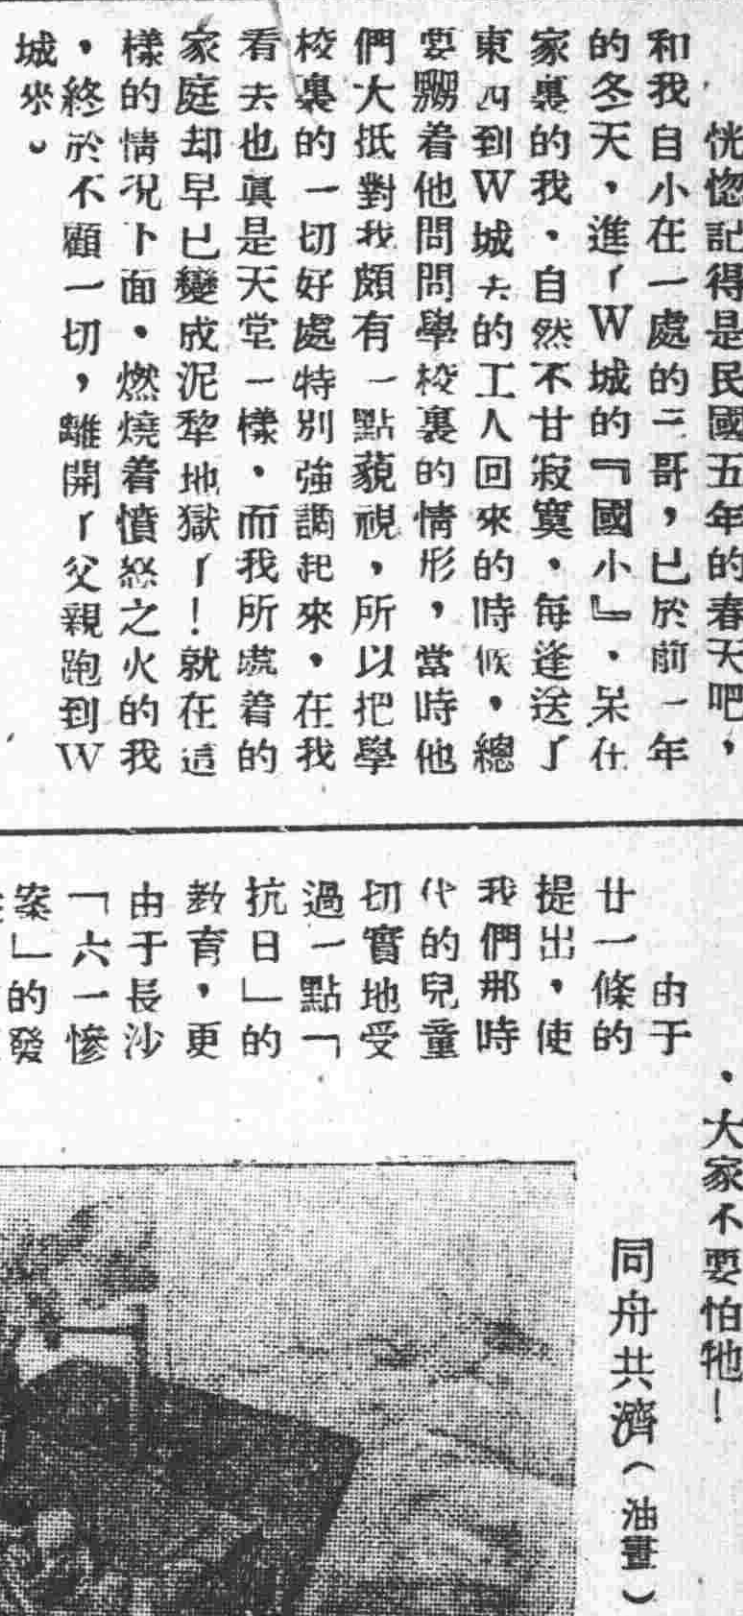 恍惚記得是民國五年的春天吧，
和我自小在一處的二哥，已於前一年
的冬天，進了W城的『國小』，呆在
家裏的我，自然不甘寂寞，每逢送了
東西到W城去的工人回來的時候，總
要嬲着他問問學校裏的情形，當時他
們大抵對我頗有一點藐視，所以把學
校裏的一切好處特別強調起來，在我
看去也真是天堂一樣，而我所處着的
家庭却早已變成泥犂地獄了！就在這
樣的情况下面，燃燒着憤怒之火的我
，終於不顧一切，離開了父親跑到W
城來。
由于
廿一條的
提出，使
我們那時
代的兒童
切實地受
過一點「
抗日」的
教育，更
由于長沙
「六一慘
案」的發
，大家不要怕牠！
同舟共濟（油畫）